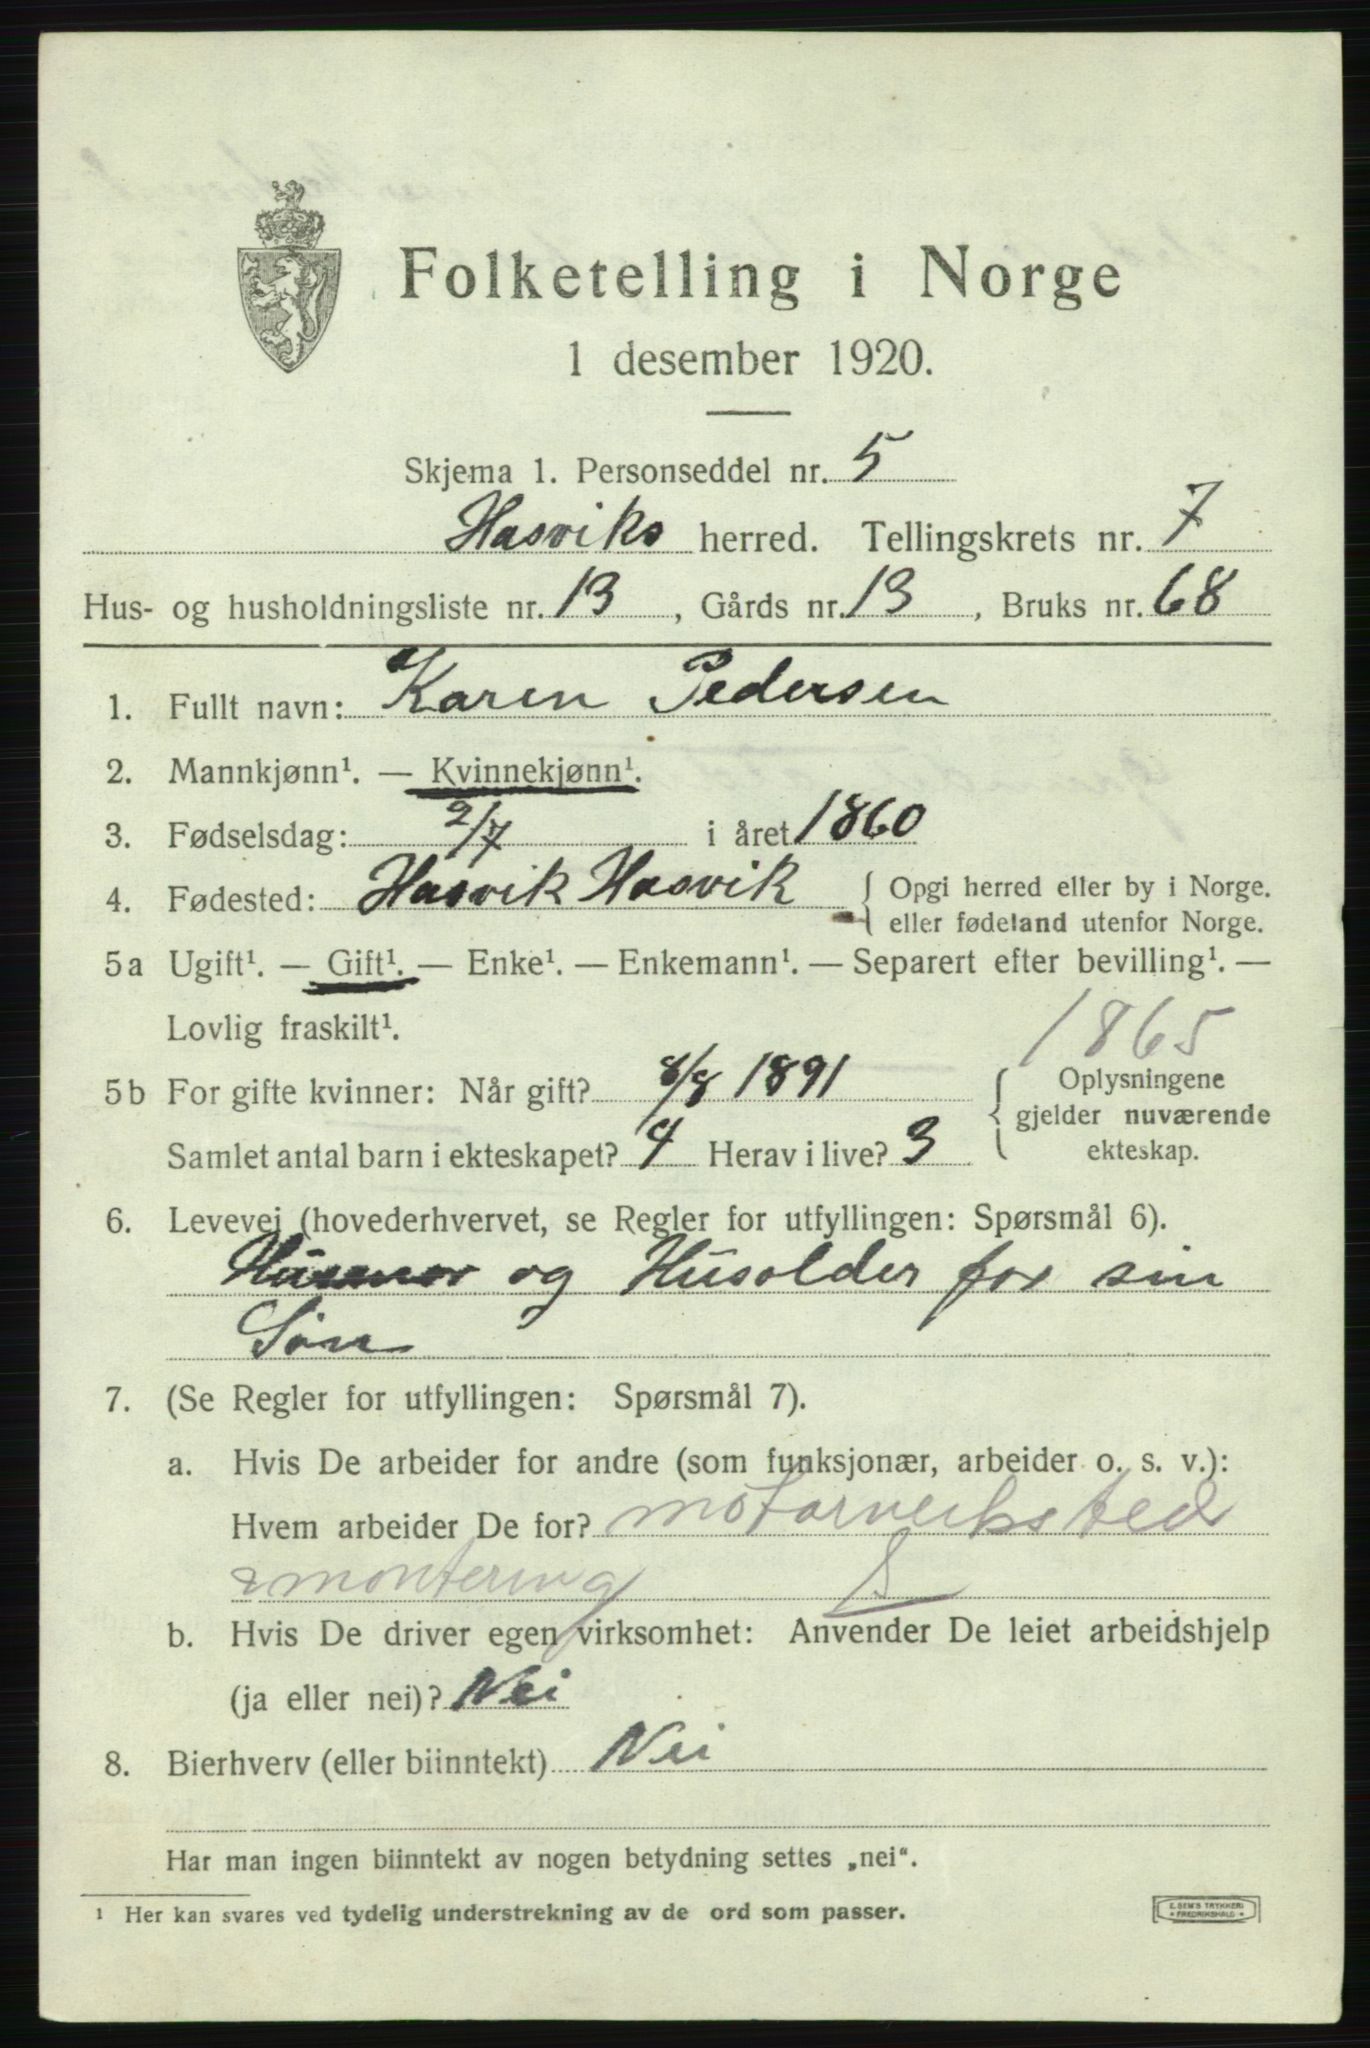 Folketelling i Norge
1 desember 1920.
Skjema 1. Personseddel nr. 5
Hasviks herred. Tellingskrets nr. 7
Hus- og husholdningsliste nr. 13, Gårds nr. 13, Bruks nr. 68
1. Fullt navn: Karen Pedersen
2. Mannkjønn¹. — Kvinnekjønn¹.
3. Fødselsdag: 2/7 i året 1860
4. Fødested: Hasvik Hasvik { Opgi herred eller by i Norge.
eller fødeland utenfor Norge.
5a Ugift¹. — Gift¹. — Enke¹. — Enkemann¹. — Separert efter bevilling¹. —
Lovlig fraskilt¹.
1865
5b For gifte kvinner: Når gift? 8/8 1891
Samlet antal barn i ekteskapet? 4 Herav i live? 3
{ Oplysningene
gjelder nuværende
ekteskap.
6. Levevei (hovederhvervet, se Regler for utfyllingen: Spørsmål 6).
Husmor og Husolder for sin
Søn
7. (Se Regler for utfyllingen: Spørsmål 7).
a. Hvis De arbeider for andre (som funksjonær, arbeider o. s. v.):
Hvem arbeider De for? motorverksted
montering S
b. Hvis De driver egen virksomhet: Anvender De leiet arbeidshjelp
(ja eller nei)? Nei
8. Bierhverv (eller biinntekt) Nei
Har man ingen biinntekt av nogen betydning settes „nei“.
¹ Her kan svares ved tydelig understrekning av de ord som passer.
E. SEM'S TRYKKERI
FREDRIKSHALD